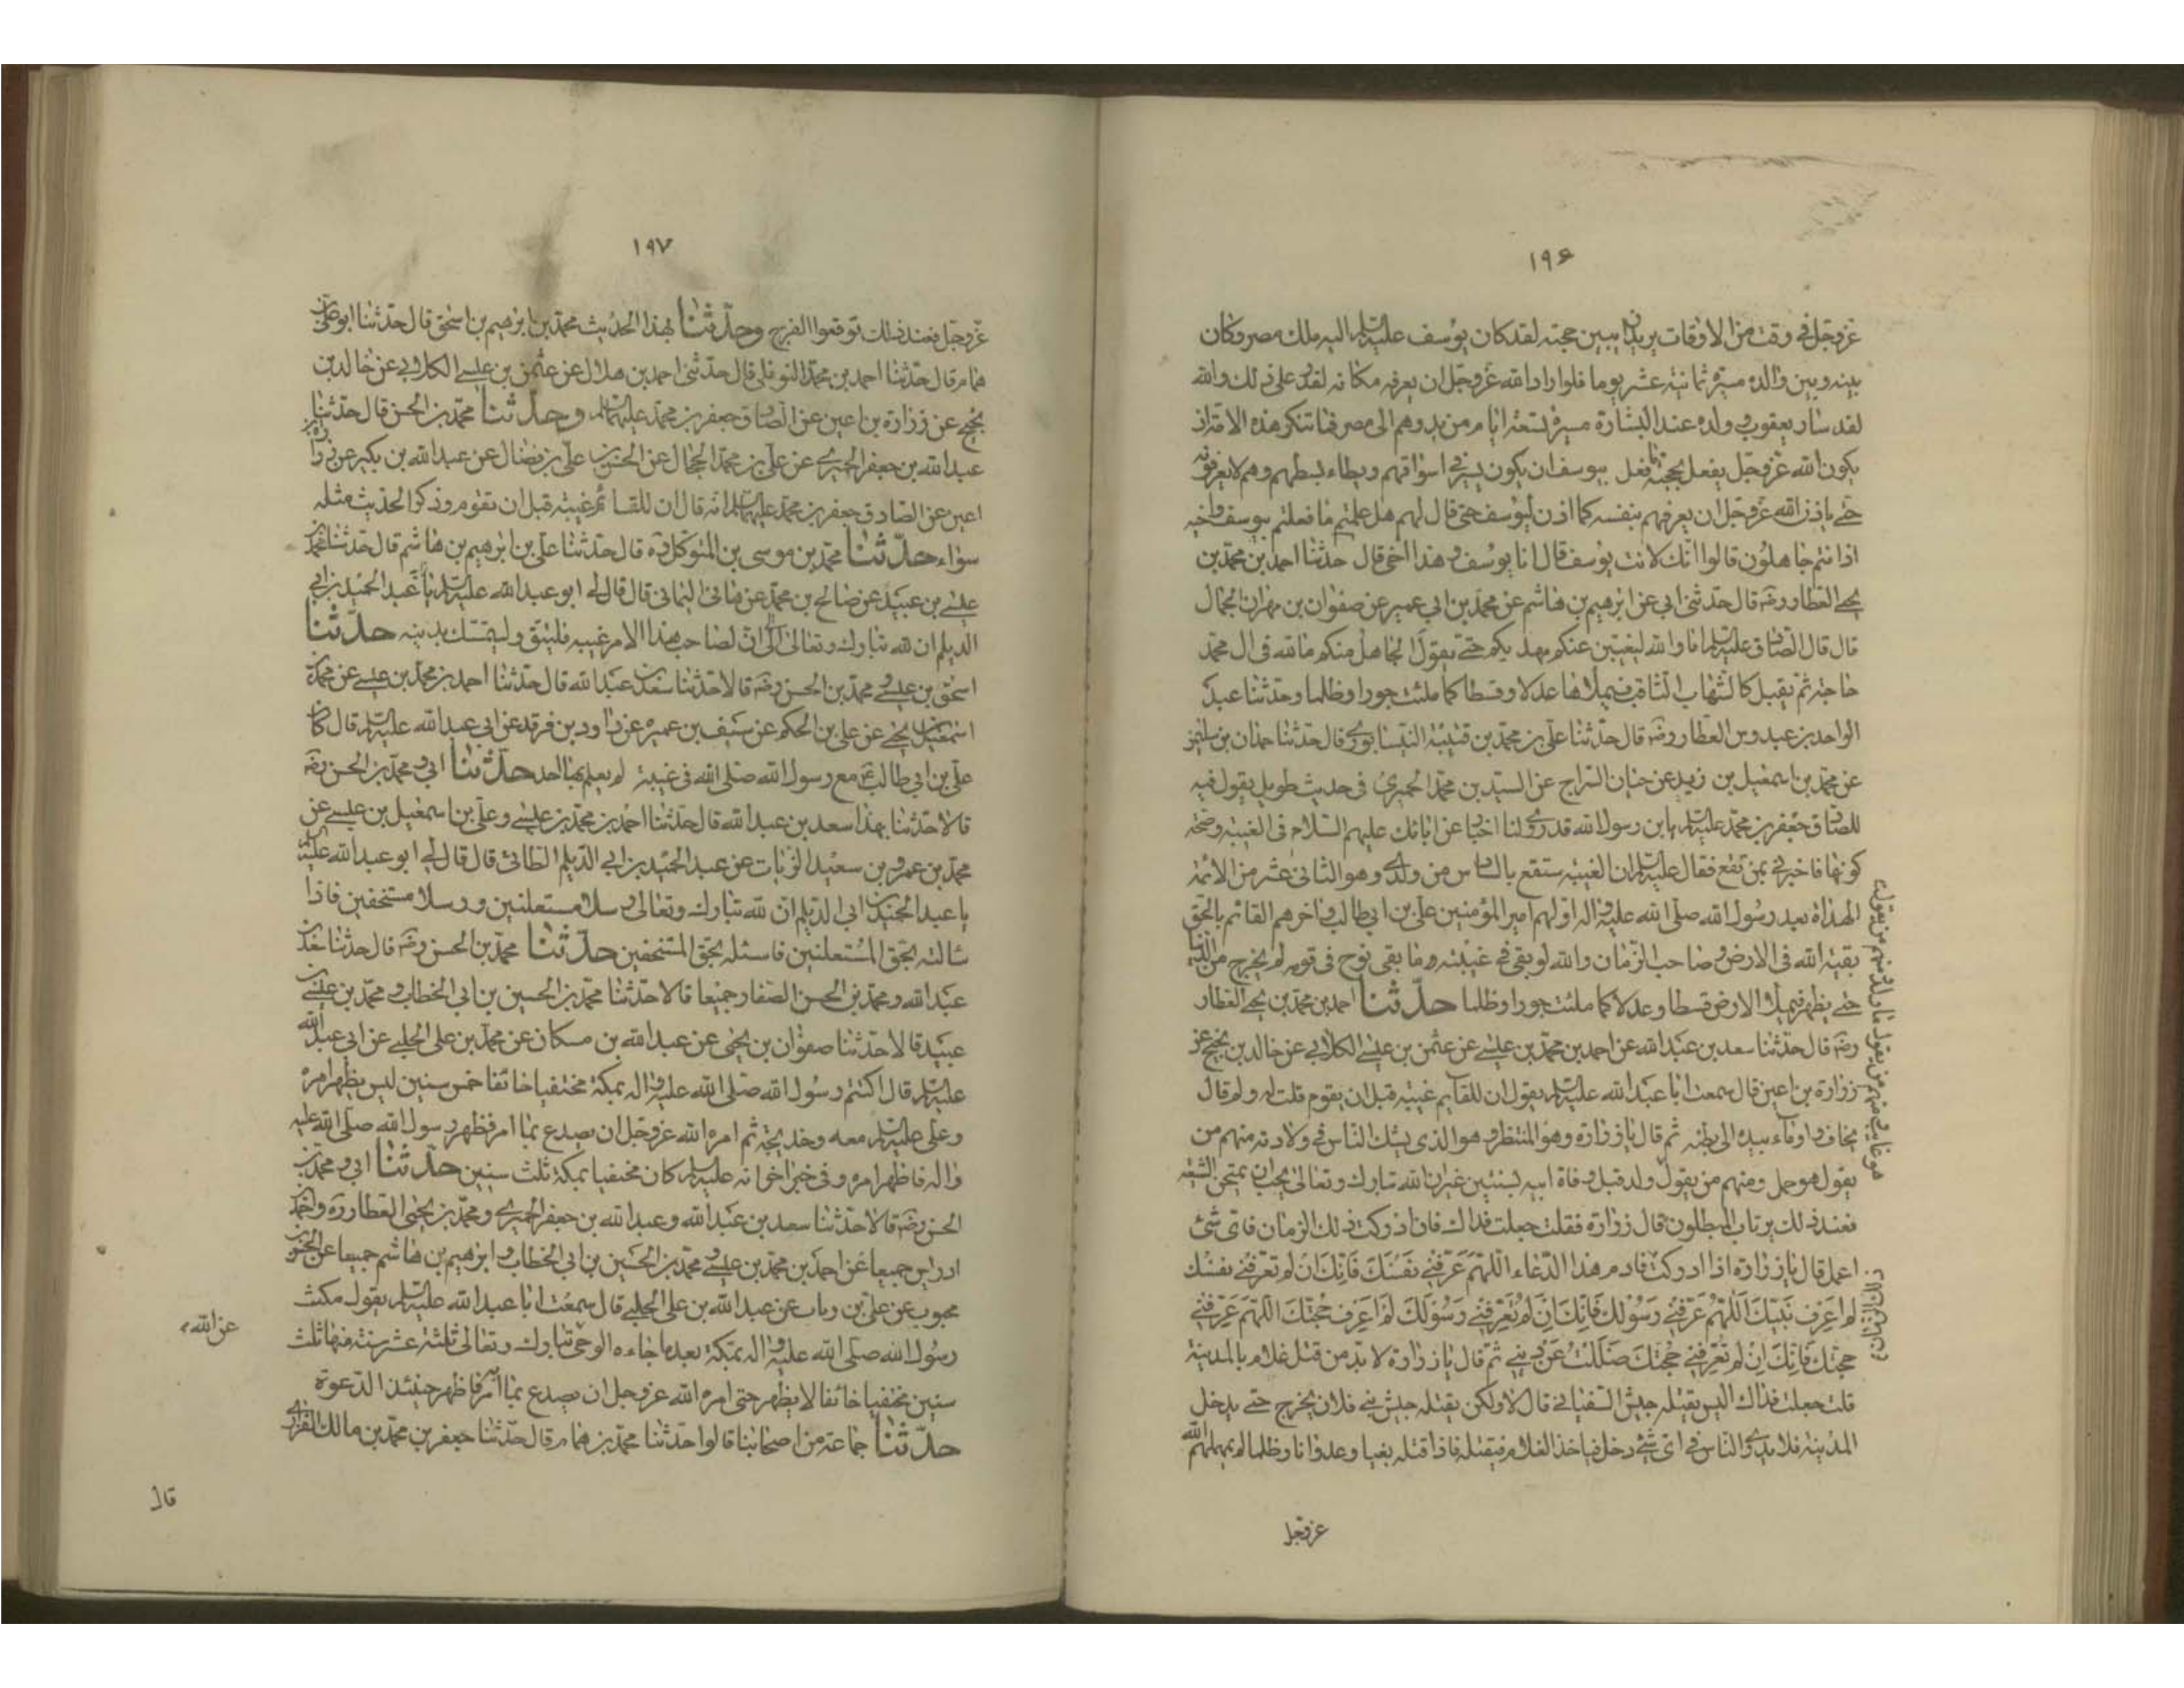 ١٩۶
عزوجل فى وقت من الاوقات يريد ان يبين حجته لقد كان يوسف عليه السلم اليه ملك مصر وكان
بينه وبين والده مسيرة ثمانية عشر يوما فلو اراد الله عزوجل ان يعرفه مكانه لقدر على ذلك والله
لقد سار يعقوب وولده عند البشارة مسيرة تسعة ايام من بدوهم الى مصر فما تنكر هذه الامة ان
يكون الله عزوجل يفعل بحجته ما فعل بيوسف ان يكون يسير فى اسواقهم ويطاء بسطهم وهم لا يعرفونه
حتى ياذن الله عزوجل ان يعرفهم بنفسه كما اذن ليوسف حتى قال لهم هل علمتم ما فعلتم بيوسف واخيه
اذ انتم جاهلون قالوا ائنك لانت يوسف قال انا يوسف وهذا اخى قال حدثنا احمد بن محمد بن
يحيى العطار رضه قال حدثنى ابى عن ابرهيم بن هاشم عن محمد بن ابى عمير عن صفوان بن مهران الجمال
قال قال الصادق عليه السلم اما والله ليغيبن عنكم مهديكم حتى يقول الجاهل منكم ما لله فى ال محمد
حاجة ثم يقبل كالشهاب الثاقب فيملاها عدلا وقسطا كما ملئت جورا وظلما وحدثنا عبد
الواحد بن عبدوس العطار رضه قال حدثنا على بن محمد بن قتيبة النيسابورى قال حدثنا حمدان بن سليمن
عن محمد بن اسمعيل بن زيد عن حنان السراج عن السيد بن محمد الحميرى فى حديث طويل يقول فيه
للصادق جعفر بن محمد عليه السلم يابن رسول الله قد روى لنا اخبار عن ابائك عليهم السلام فى الغيبة وصحة
كونها فاخبرنى بمن تقع فقال عليه السلم ان الغيبة ستقع بالسادس من ولدى وهو الثانى عشر من الائمة
الهداة بعد رسول الله صلى الله عليه واله اولهم امير المؤمنين على بن ابى طالب واخرهم القائم بالحق
بقية الله فى الارض وصاحب الزمان والله لو بقى فى غيبته ما بقى نوح فى قومه لم يخرج من الدنيا
حتى يظهر فيملأ الارض قسطا وعدلا كما ملئت جورا وظلما حدثنا احمد بن محمد بن يحيى العطار
رضه قال حدثنا سعد بن عبد الله عن احمد بن محمد بن عيسى عن عثمن بن عيسى الكلابى عن خالد بن نجيح عن
زرارة بن اعين قال سمعت ابا عبد الله عليه السلم يقول ان للقايم غيبة قبل ان يقوم قلت له ولم قال
يخاف واوماء بيده الى بطنه ثم قال يا زرارة وهو المنتظر وهو الذى يشك الناس فى ولادته منهم من
يقول هو حمل ومنهم من يقول ولد قبل وفاة ابيه بسنتين غير ان الله تبارك وتعالى يحب ان يمتحن الشيعة
فعند ذلك يرتاب المبطلون قال زرارة فقلت جعلت فداك فان ادركت ذلك الزمان فاى شئ
اعمل قال يا زرارة اذا ادركت فادم هذا الدعاء اللهم عرفنى نفسك فانك ان لم تعرفنى نفسك
لم اعرف نبيك اللهم عرفنى رسولك فانك ان لم تعرفنى رسولك لم اعرف حجتك اللهم عرفنى
حجتك فانك ان لم تعرفنى حجتك ضللت عن دينى ثم قال يا زرارة لا بد من قتل غلام بالمدينة
قلت جعلت فداك اليس يقتله جيش السفيانى قال لا ولكن يقتله جيش بنى فلان يخرج حتى يدخل
المدينة فلا يدرى الناس فى اى شئ دخل فياخذ الغلام فيقتله فاذا قتله بغيا وعدوانا وظلما لم يمهلهم الله
عزوجل
هو غايب ومنهم من يقول ما ولد ومنهم من يقول
١٩٧
عزوجل فعند ذلك توقعوا الفرج وحدثنا بهذا الحديث محمد بن ابرهيم بن اسحق قال حدثنا ابو على بن
همام قال حدثنا احمد بن محمد النوفلى قال حدثنى احمد بن هلال عن عثمن بن عيسى الكلابى عن خالد بن
نجيح عن زرارة بن اعين عن الصادق جعفر بن محمد عليهما السلم وحدثنا محمد بن الحسن قال حدثنا
عبد الله بن جعفر الحميرى عن على بن محمد الحجال عن الحسن بن على بن فضال عن عبد الله بن بكير عن زرارة بن
اعين عن الصادق جعفر بن محمد عليهما السلم انه قال ان للقائم غيبة قبل ان يقوم وذكر الحديث مثله
سواء حدثنا محمد بن موسى بن المتوكل ره قال حدثنا على بن ابرهيم بن هاشم قال حدثنا محمد بن
عيسى بن عبيد عن صالح بن محمد عن هانى اليمانى قال قال لى ابو عبد الله عليه السلم يا عبد الحميد بن ابى
الديلم ان لله تبارك وتعالى ان لصاحب هذا الامر غيبة فليتق وليتمسك بدينه حدثنا
اسحق بن عيسى ومحمد بن الحسن رضه قالا حدثنا سعد بن عبد الله قال حدثنا احمد بن محمد بن عيسى عن محمد بن
اسمعيل بن يحيى عن على بن الحكم عن سيف بن عميره عن داود بن فرقد عن ابى عبد الله عليه السلم قال كان
على بن ابى طالب ع مع رسول الله صلى الله فى غيبة لم يعلم بها احد حدثنا ابى ومحمد بن الحسن رضه
قالا حدثنا بهذا سعد بن عبد الله قال حدثنا احمد بن محمد بن عيسى وعلى بن اسمعيل بن عيسى عن
محمد بن عمرو بن سعيد الزيات عن عبد الحميد بن ابى الديلم الطائى قال قال لى ابو عبد الله عليه السلم
يا عبد الحميد بن ابى الديلم ان لله تبارك وتعالى رسلا مستعلنين ورسلا مستخفين فاذا
سالته بحق المستعلنين فاسئله بحق المستخفين حدثنا محمد بن الحسن رضه قال حدثنا سعد بن
عبد الله ومحمد بن الحسن الصفار جميعا قالا حدثنا محمد بن الحسين بن ابى الخطاب ومحمد بن عيسى بن
عبيد قالا حدثنا صفوان بن يحيى عن عبد الله بن مسكان عن محمد بن على الحلبى عن ابى عبد الله
عليه السلم قال اكتتم رسول الله صلى الله عليه واله بمكة مختفيا خائفا خمس سنين ليس يظهر امره
وعلى عليه السلم معه وخديجة ثم امره الله عزوجل ان يصدع بما امر فظهر رسول الله صلى الله عليه
واله فاظهر امره وفى خبر اخر انه عليه السلم كان مختفيا بمكة ثلث سنين حدثنا ابى ومحمد بن
الحسن رضه قالا حدثنا سعد بن عبد الله وعبد الله بن جعفر الحميرى ومحمد بن يحيى العطار ره واحمد بن
ادريس جميعا عن احمد بن محمد بن عيسى ومحمد بن الحسين بن ابى الخطاب وابرهيم بن هاشم جميعا عن الحسن بن
محبوب عن على بن رياب عن عبيد الله بن على الحلبى قال سمعت ابا عبد الله عليه السلم يقول مكث
رسول الله صلى الله عليه واله بمكة بعد ما جاءه الوحى تبارك وتعالى ثلثة عشر سنة منها ثلث
سنين مختفيا خائفا لا يظهر حتى امره الله عزوجل ان يصدع بما امر فاظهر حينئذ الدعوة
حدثنا جماعة من اصحابنا قالوا حدثنا محمد بن همام قال حدثنا جعفر بن محمد بن مالك الفزارى
عن الله
قال